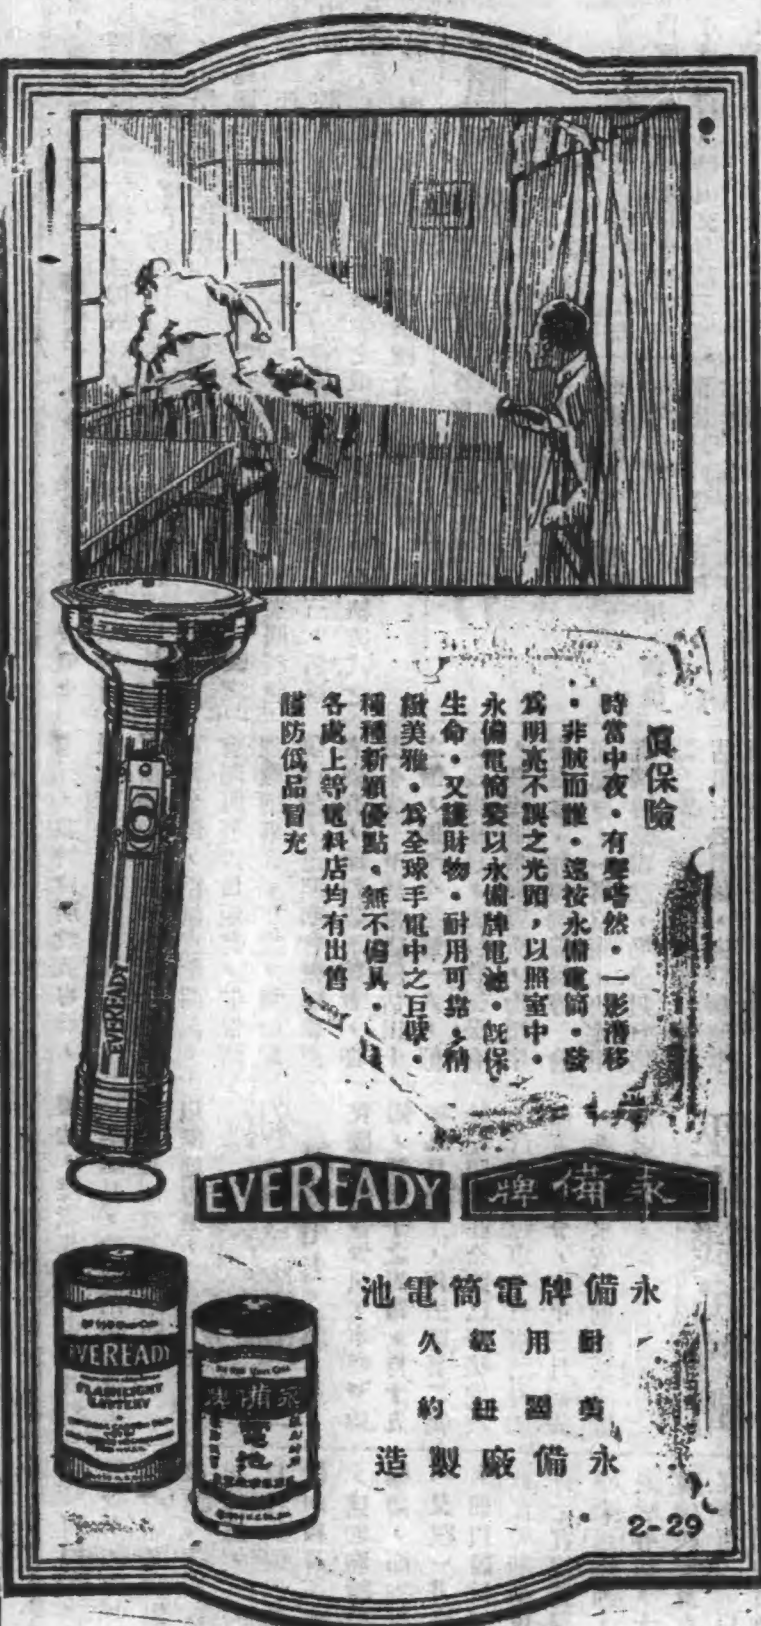 真保險
時當中夜。有聲嗒然。一影潛移
。非賊而誰。速按永備電筒。發
為明亮不誤之光頭，以照室中。
永備電筒裝以永備牌電池。既保
生命。又護財物。耐用可靠。精
緻美雅。為全球手電中之巨擘。
種種新穎優點。無不備具。
各處上等電料店均有出售
謹防低品冒充
EVEREADY
EVEREADY
永備牌
永備牌電筒電池
耐用經久
美國紐約
永備廠製造
EVEREADY
FLASHLIGHT
BATTERY
永備牌
電池
2-29